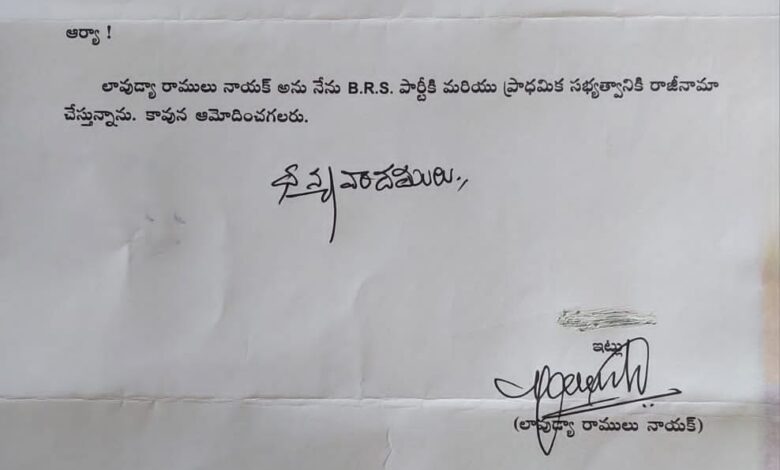 ఆర్యా !
లావుడ్యా రాములు నాయక్ అను నేను B.R.S. పార్టీకి మరియు ప్రాధమిక సభ్యత్వానికి రాజీనామా
చేస్తున్నాను. కావున ఆమోదించగలరు.
ధన్యవాదములు.,
ఇట్లు
(లావుడ్యా రాములు నాయక్)